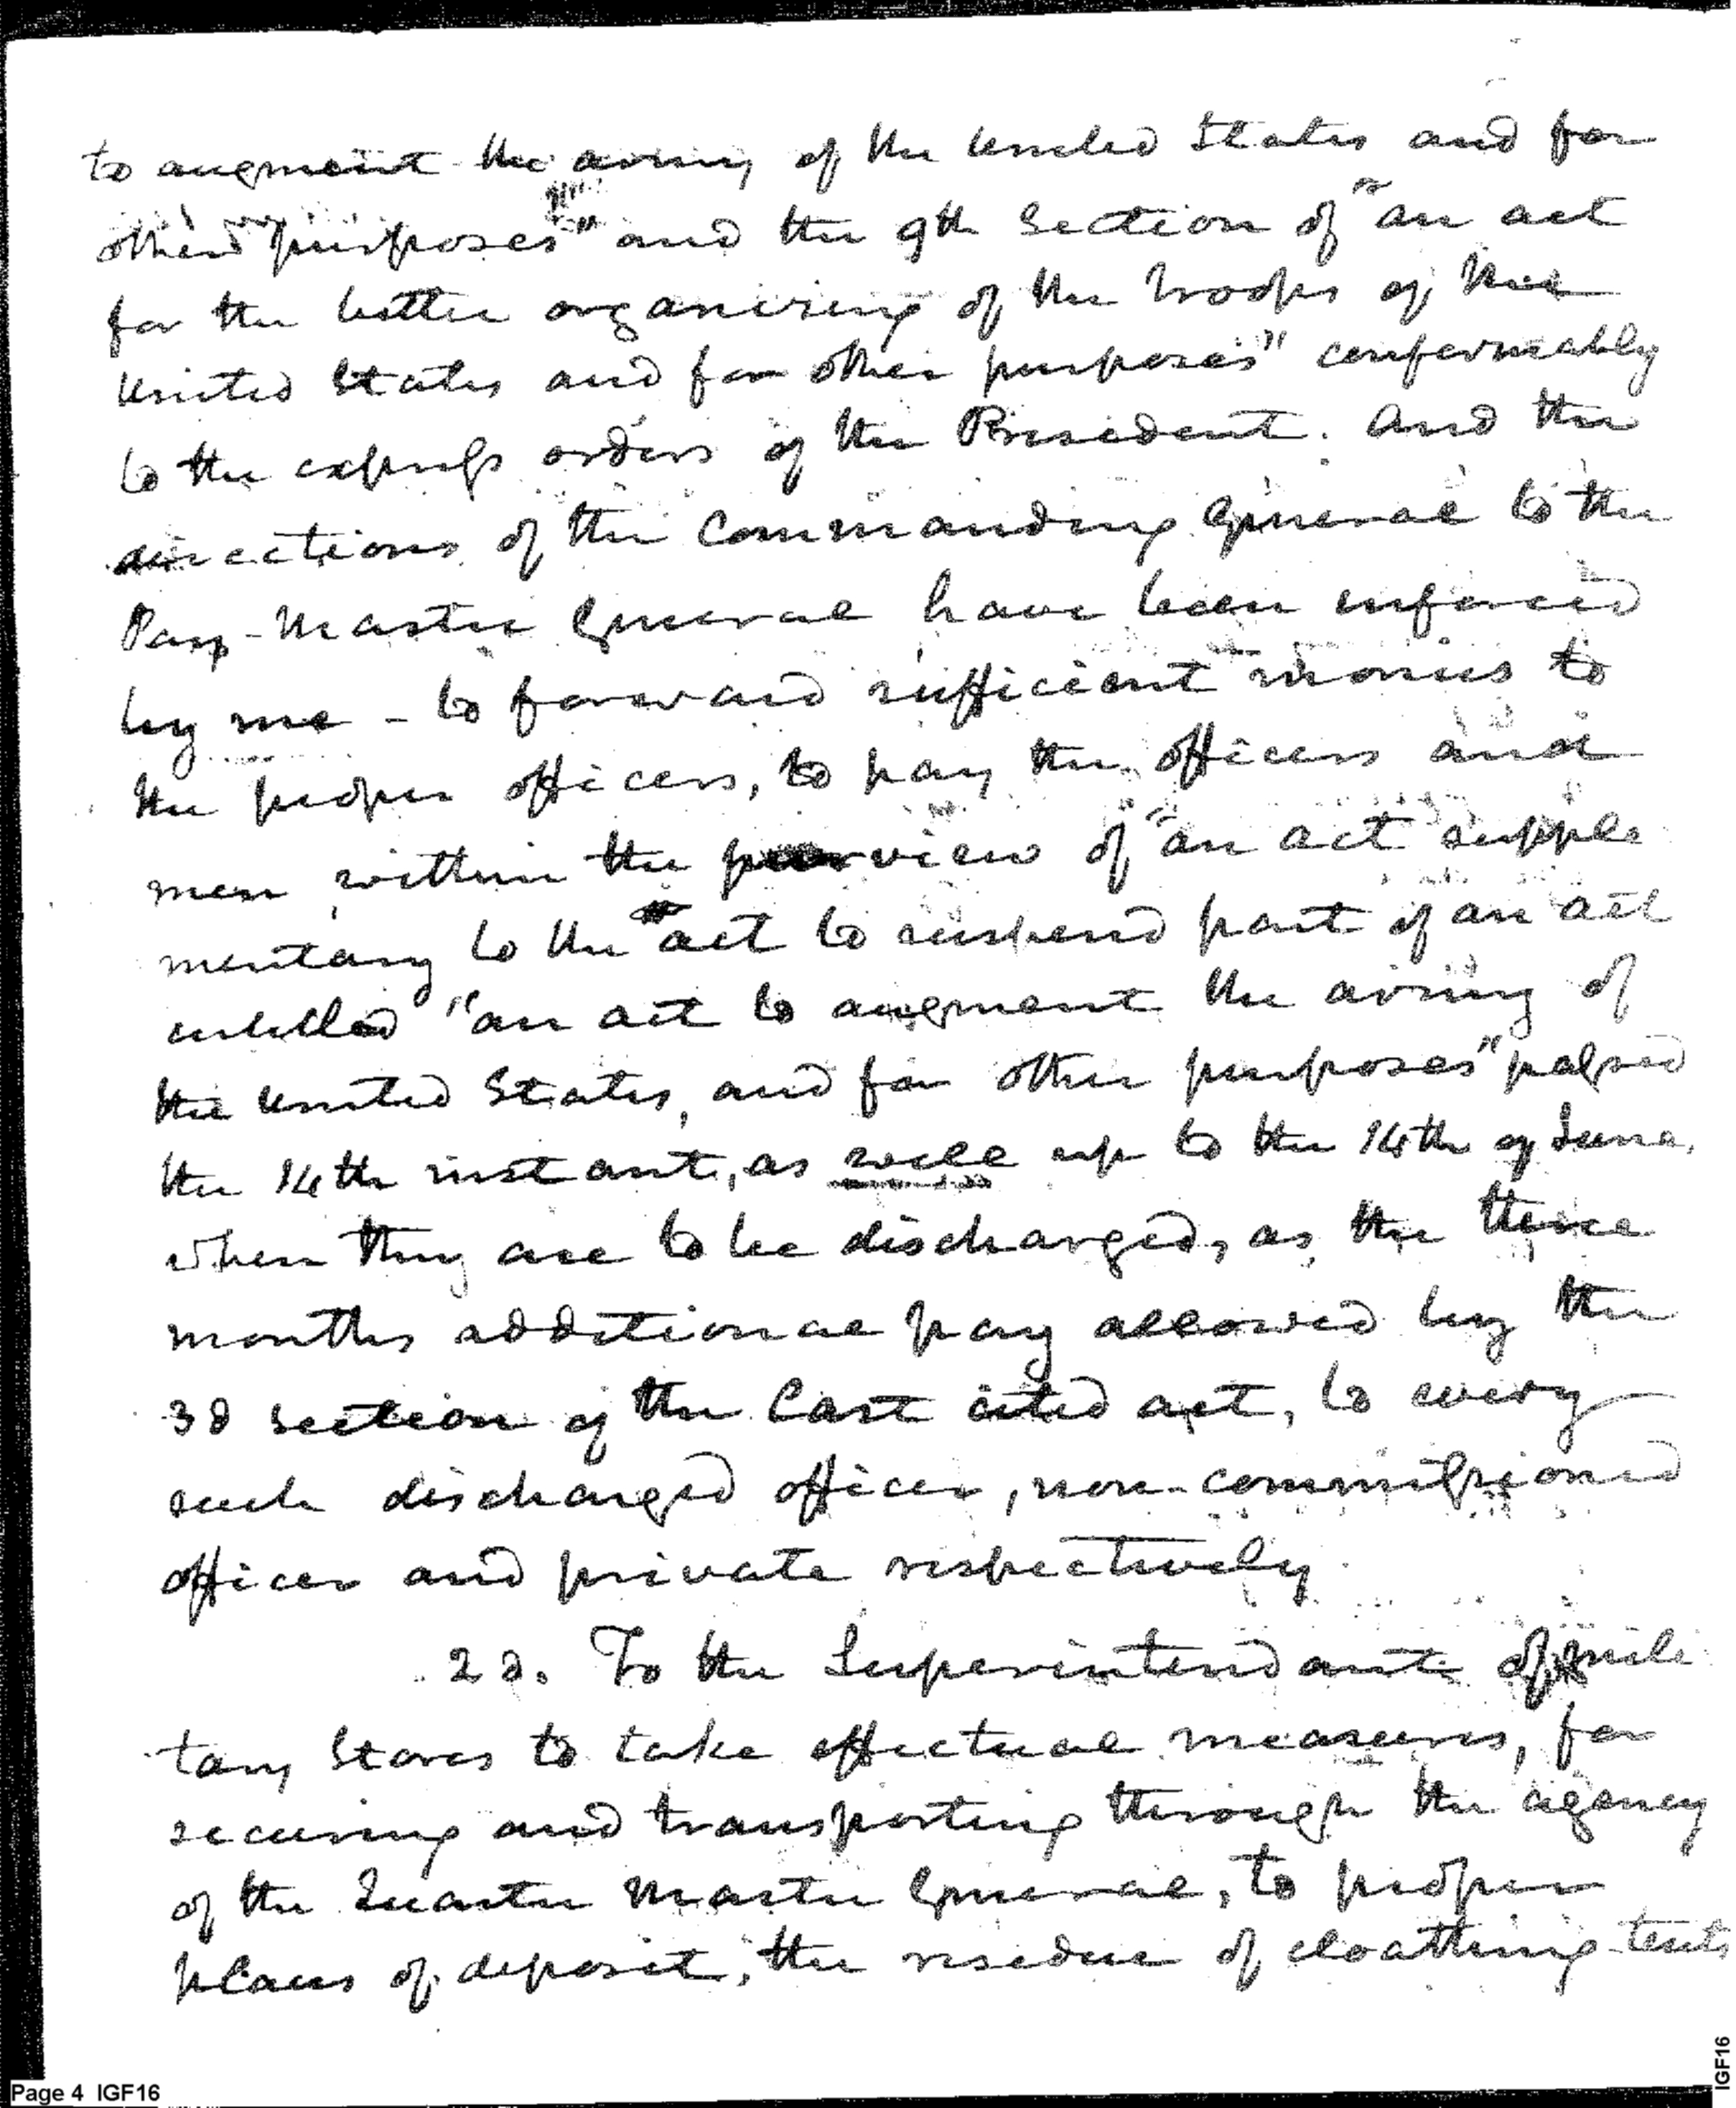 to augment the army of the United States and for
other purposes" and the 9th Section of "an act
for the better organizing of the troops of the
United States and for other purposes" conformably
to the express orders of the President. And the
directions of the Commanding General to the
Pay-Master General have been enforced
by me - to forward sufficient monies to
the proper officers, to pay the officers and
men within the purview of "an act supple
mentary to the "act to suspend part of an act
entitled "an act to augment the army of
the United States, and for other purposes" passed
the 14th instant, as well up to the 14th of June,
when they are to be discharged, as the three
months additional pay allowed by the
3d section of the last cited act, to every
such discharged officer, non-commissioned
officer and private respectively.
2d. To the Superintendant of mili
tary Stores to take effectual measures, for
securing and transporting through the agency
of the Quarter Master General, to proper
places of deposit, the residue of cloathing tents
Page 4 IGF16
IGF16